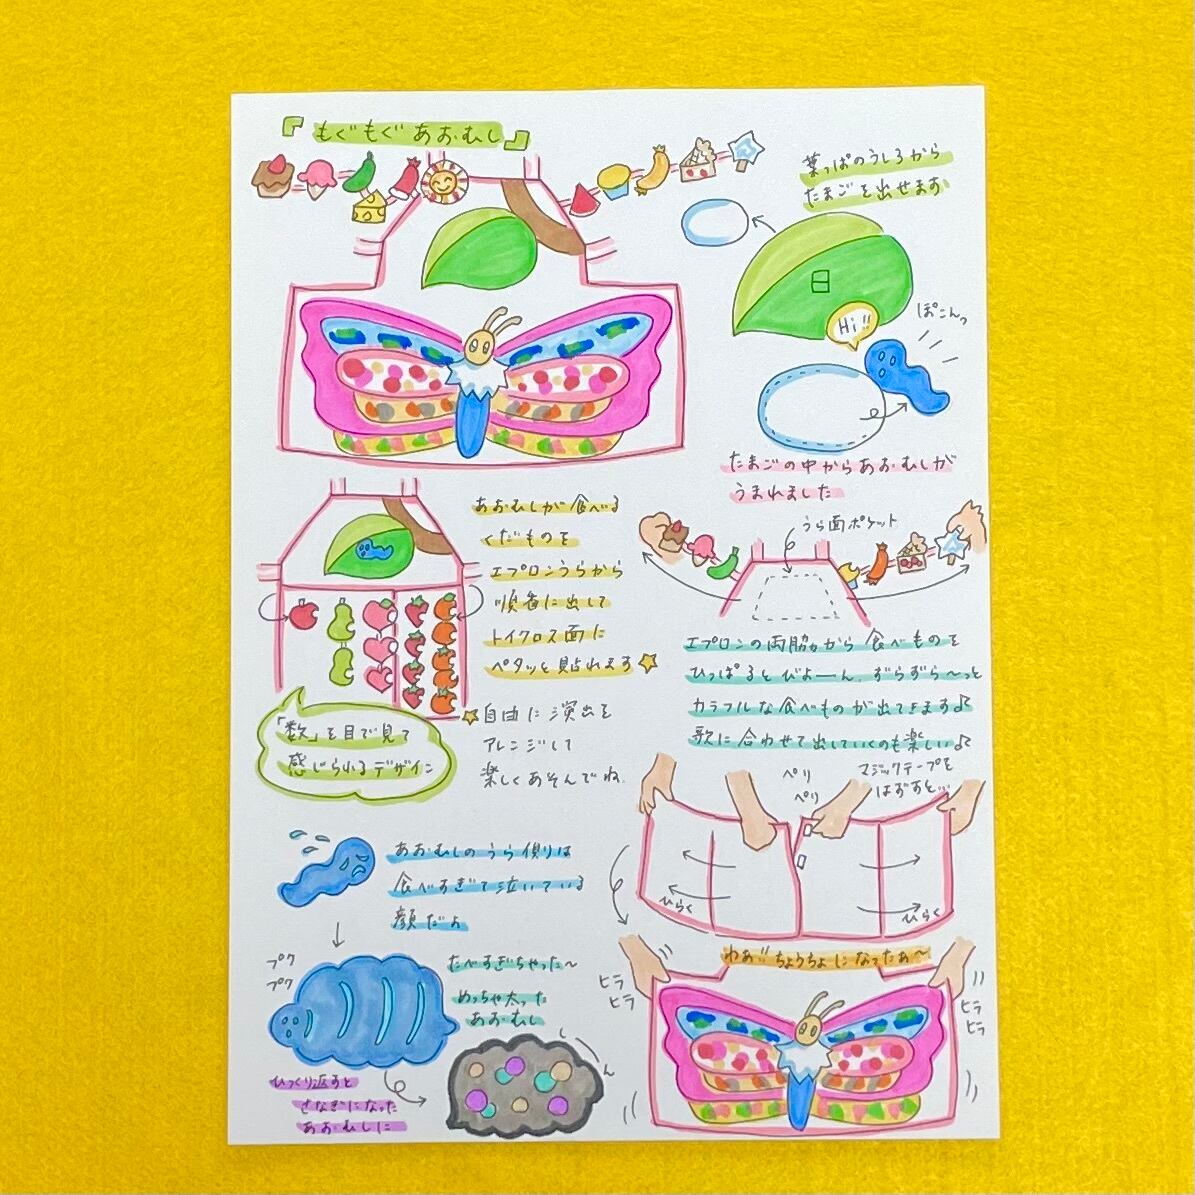 『もぐもぐあおむし』
葉っぱのうしろから
たまごを出せます
Hi!!
ぽこんっ
たまごの中からあおむしが
うまれました
あおむしが食べる
くだものを
エプロンうらから
順番に出して
トイクロス面に
ペタッと貼れます☆
☆自由に演出を
アレンジして
楽しくあそんでね
「数」を目で見て
感じられるデザイン
うら面ポケット
エプロンの両脇から食べものを
ひっぱるとびよーん、ずらずら〜っと
カラフルな食べものが出てきます♪
歌に合わせて出していくのも楽しい♪
ペリ
ペリ
マジックテープを
はずすと…
ひらく
ひらく
あおむしのうら側は
食べすぎて泣いている
顔だよ
プク
プク
たべすぎちゃった〜
めっちゃ太った
あおむし
ひっくり返すと
さなぎになった
あおむしに
わぁ!!ちょうちょになったぁ〜
ヒラ
ヒラ
ヒラ
ヒラ